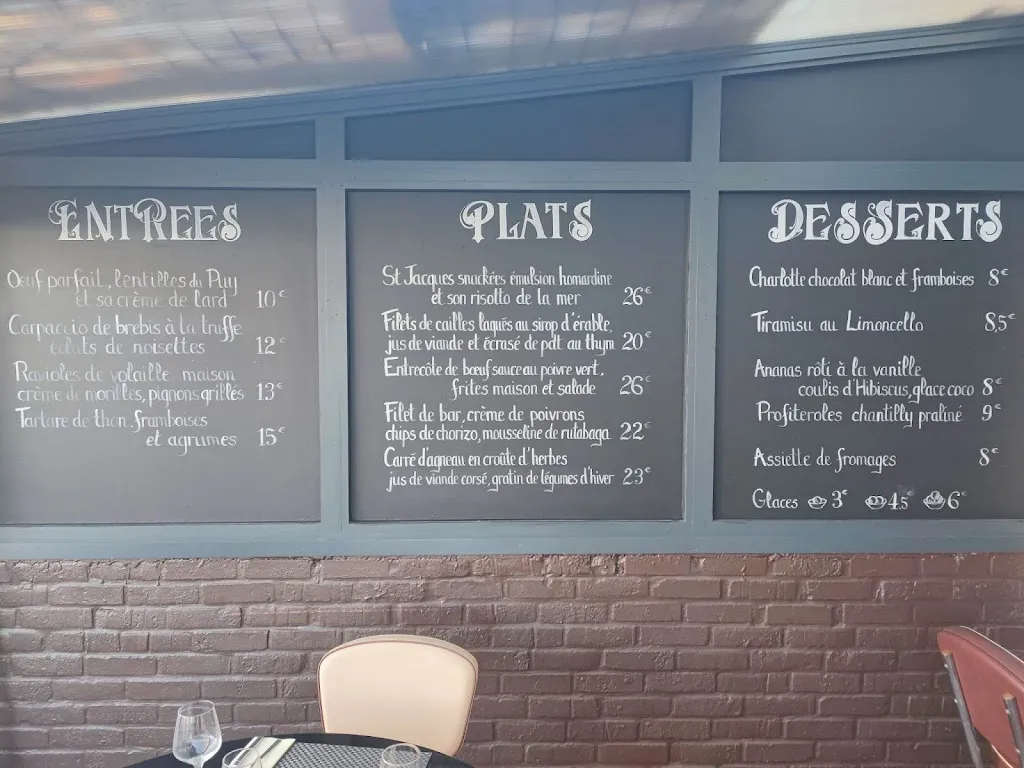 ENTREES
Oeuf parfait, lentilles du Puy
et sa crème de lard 10€
Carpaccio de brebis à la truffe
éclats de noisettes 12€
Ravioles de volaille maison
crème de morilles, pignons grillés 13€
Tartare de thon, framboises
et agrumes 15€
PLATS
St Jacques snackées émulsion homardine
et son risotto de la mer 26€
Filets de cailles laqués au sirop d'érable,
jus de viande et écrasé de pdt au thym 20€
Entrecôte de bœuf sauce au poivre vert,
frites maison et salade 26€
Filet de bar, crème de poivrons
chips de chorizo, mousseline de rutabaga 22€
Carré d'agneau en croûte d'herbes
jus de viande corsé, gratin de légumes d'hiver 23€
DESSERTS
Charlotte chocolat blanc et framboises 8€
Tiramisu au Limoncello 8,5€
Ananas rôti à la vanille
coulis d'Hibiscus, glace coco 8€
Profiteroles chantilly praliné 9€
Assiette de fromages 8€
Glaces 3€ 4,5€ 6€